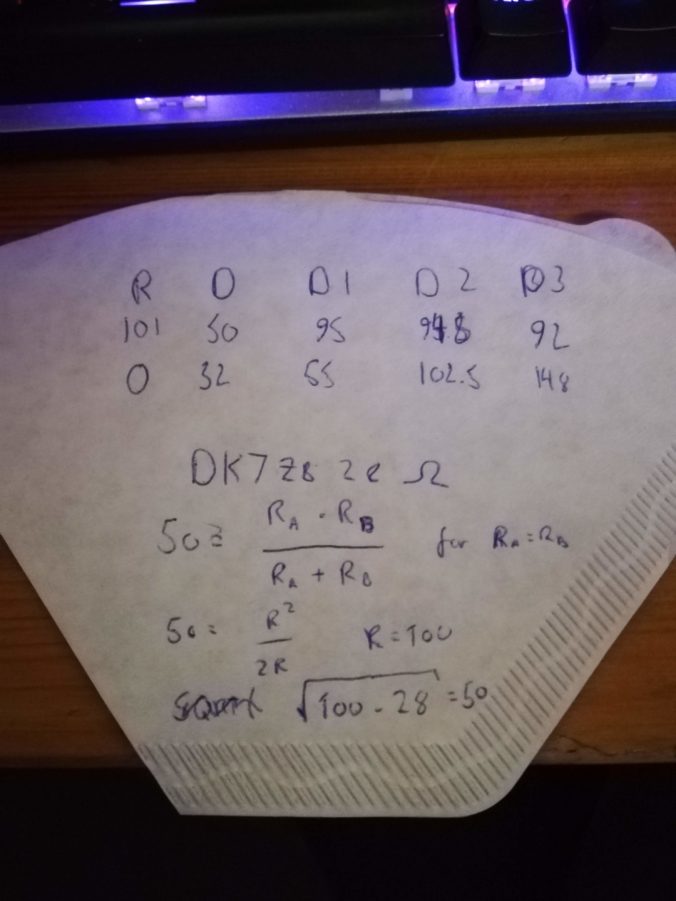 R D D1 D2 D3
101 50 95 92
0 32 65 102.5 148
DK7ZB 28 Ω
50 = R_A · R_B / R_A + R_B for R_A = R_B
50 = R² / 2R R = 100
√100 · 28 = 50